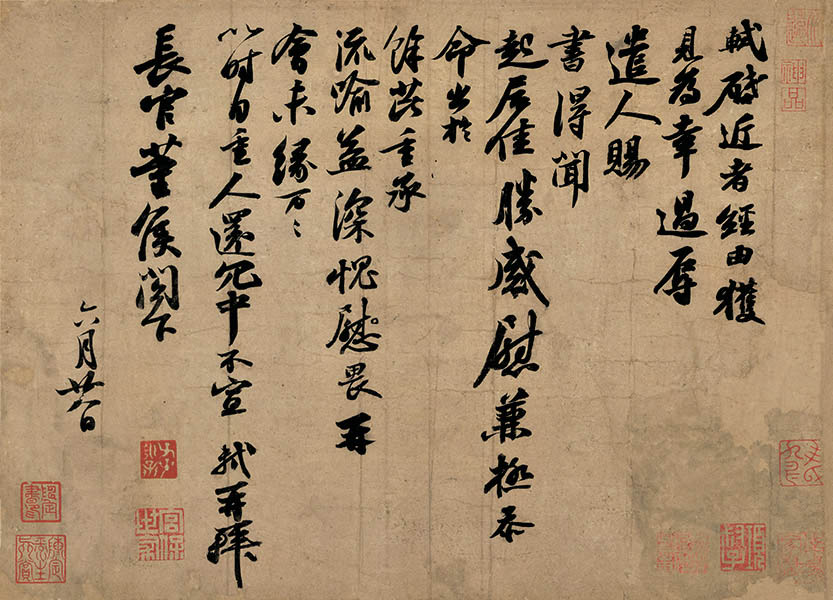 軾啟近者經由獲
見為幸過辱
遣人賜
書得聞
起居佳勝感慰兼極忝
命出於
餘芘重承
流喻益深愧慰畏再
會未緣万〻
以時自重人還冗中不宣 軾再拜
長官董侯閤下
六月廿八日
神品
宮保世家